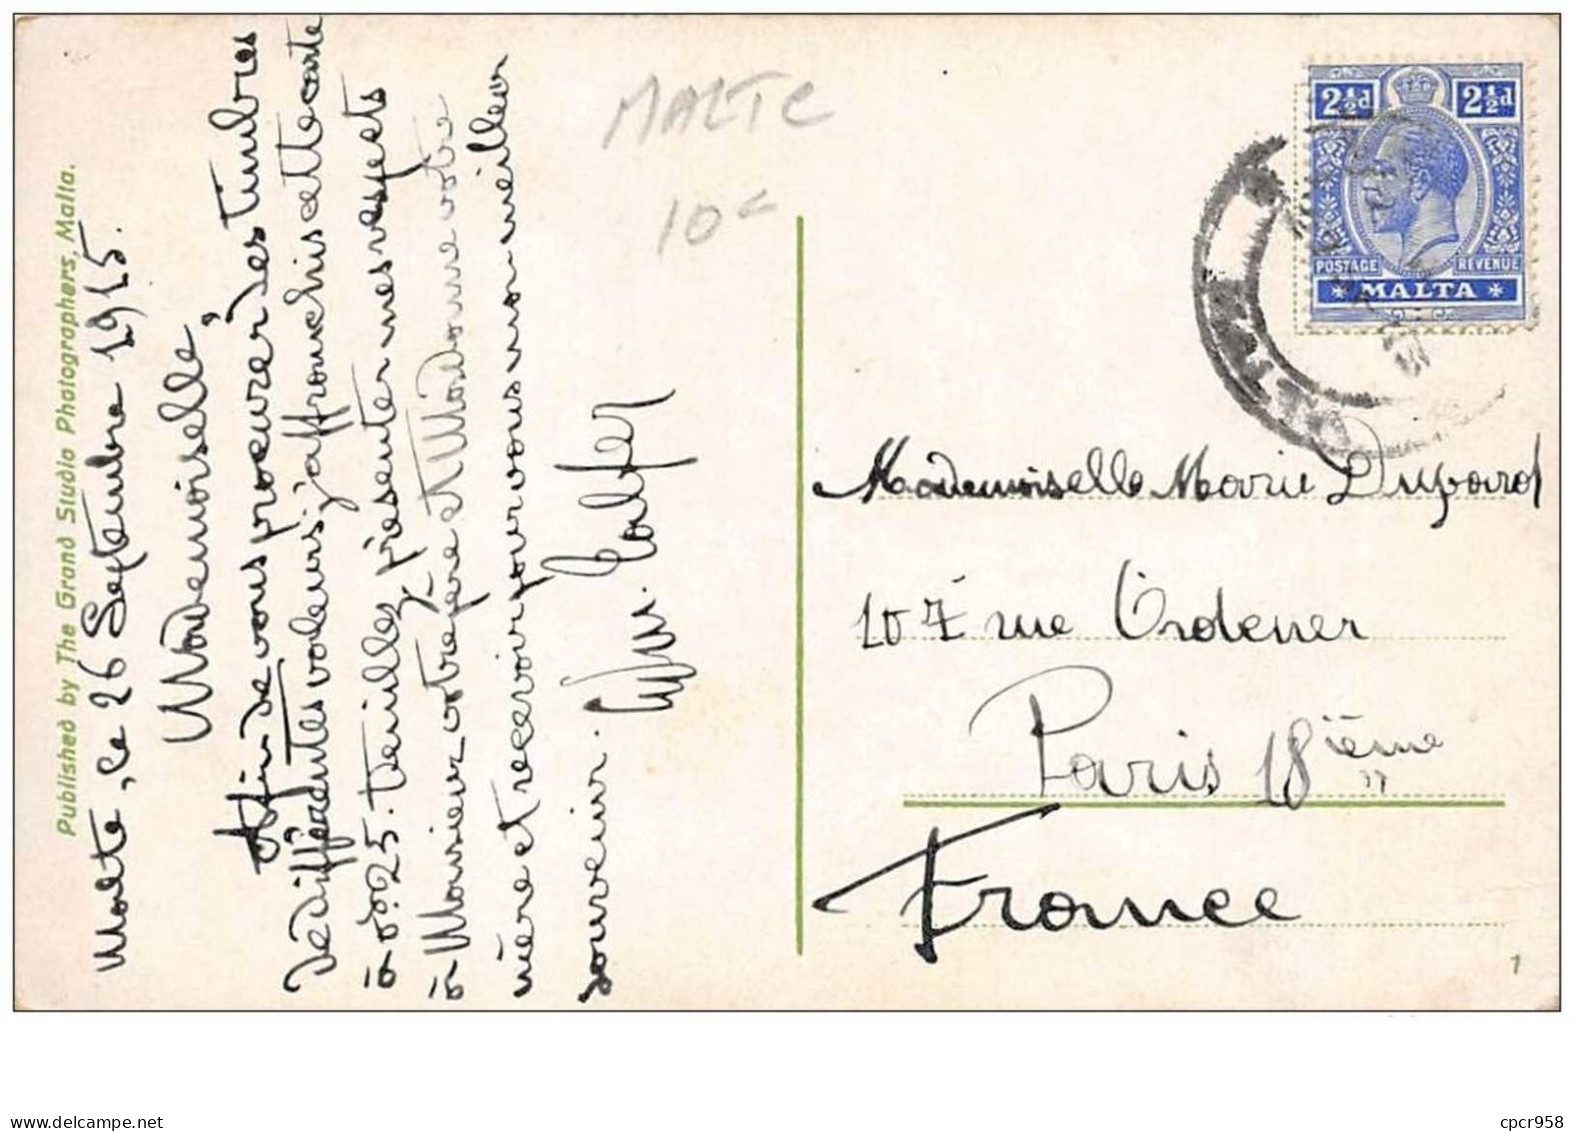 Published by The Grand Studio Photographers, Malta.
Malte, le 26 Septembre 1915.
Mademoiselle,
Afin de vous procurer des timbres
de différentes valeurs, j'affranchis cette carte
à 0f.25. Veuillez présenter mes respects
à Monsieur votre père et Madame votre
mère et recevoir pour vous mon meilleur
souvenir.
MALTE
10c
2½d 2½d
POSTAGE REVENUE
MALTA
Mademoiselle Marie Dupard
107 rue Ordener
Paris 18ième
France
1
delcampe.net
cpcr958